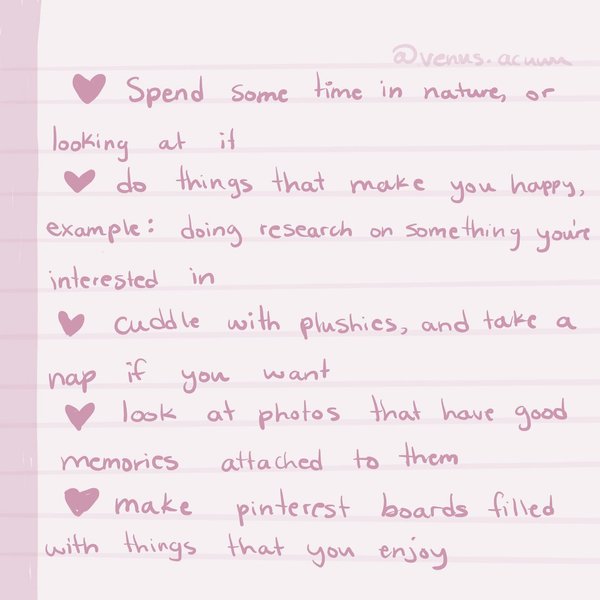 @venus.acuum
♥ Spend some time in nature, or
looking at it
♥ do things that make you happy,
example: doing research on something you're
interested in
♥ cuddle with plushies, and take a
nap if you want
♥ look at photos that have good
memories attached to them
♥ make pinterest boards filled
with things that you enjoy